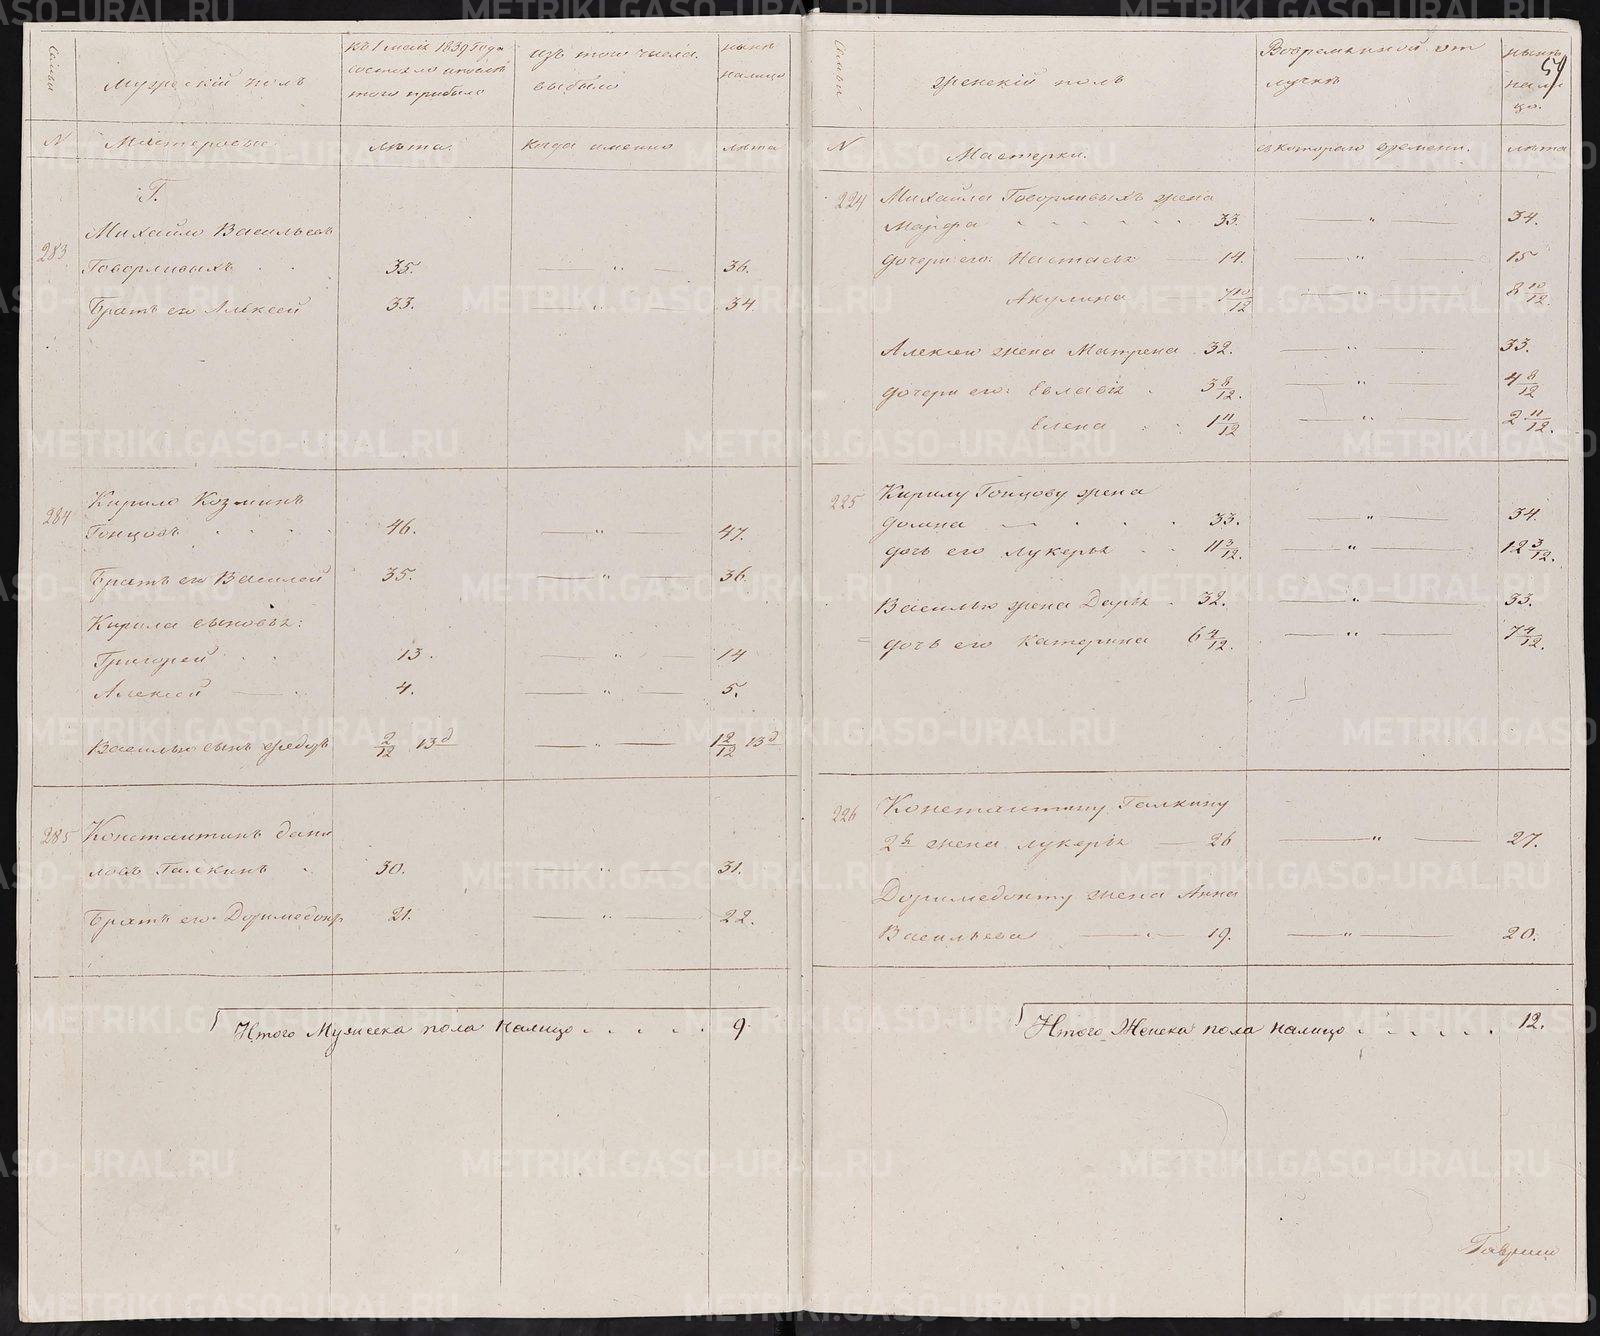 Семьи
Мужескій полъ
къ 1 маія 1839 года
состояло и после
того прибыло
изъ того числа
выбыло
нынѣ
налицо
N
Мастеровые
лѣта.
когда именно
лѣта
Г.
283
Михайло Васильевъ
Говорливыхъ . . 35. — " — 36.
Братъ его Алексей 33. — " — 34.
284
Кирило Козминъ
Гонцовъ . . . . 46. — " — 47.
Братъ его Василей 35. — " — 36.
Кирила сыновья:
Григорей . . 13. — " — 14
Алексей — . 4. — " — 5.
Василья сынъ 2/12 13д — " — 12/12 13д
285
Константинъ Дани
ловъ Галкинъ . 30. — " — 31.
Братъ его Доримедонтъ 21. — " — 22.
Итого Мужеска пола налицо . . . . . 9.
Семьи
Женскій полъ
Вовременной от
лучкѣ
нынѣ
нали
цо.
59
N
Мастерки.
съ котораго времени.
лѣта
224
Михайла Говорливыхъ жена
Марфа . . . . . . 33. — " — 34.
дочери его: Настасья — 14. — " — 15
Акулина 7 10/12 — " — 8 10/12.
Алексею жена Матрена . 32. — " — 33.
дочери его: Евлавія . 3 8/12. — " — 4 8/12
Елена . . 1 11/12 — " — 2 11/12.
225
Кирилу Гонцову жена
Домна — . . . . 33. — " — 34.
дочь его Лукерья . . 11 3/12. — " — 12 3/12.
Василью жена Дарья . 32. — " — 33.
дочь его Катерина 6 4/12. — " — 7 4/12.
226
Константину Галкину
2я жена Лукерья — 26 — " — 27.
Доримедонту жена Анна
Васильева — " — 19. — " — 20.
Итого Женска пола налицо . . . . . . 12.
METRIKI.GASO-URAL.RU